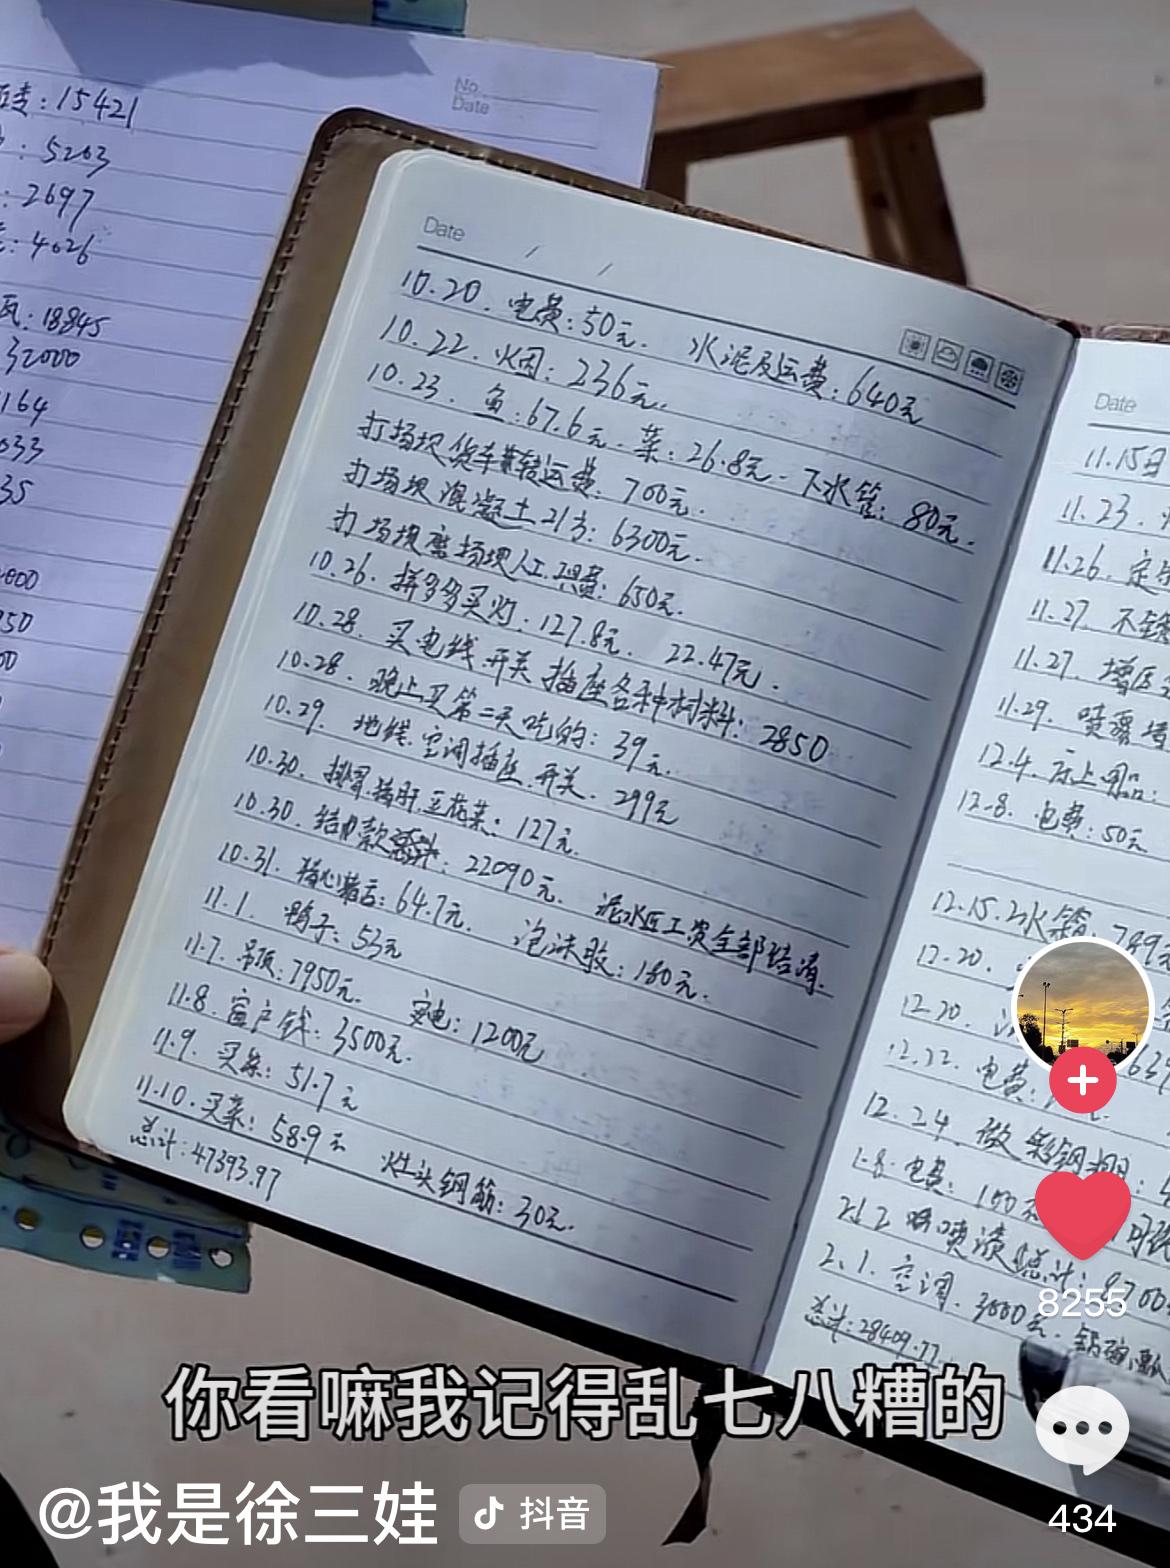 No.
Date
:15421
:5203
:2697
:4626
瓦:18845
32000
164
033
35
000
950
00
Date / /
10.20. 电费:50元. 水泥及运费:640元
10.22. 火团:236元.
10.23. 鱼:67.6元. 菜:26.8元. 下水管:80元.
打场坝货车转运费:700元.
打场坝混凝土21方:6300元.
打场坝磨场坝人工费:650元.
10.26. 拼多多买灯.127.8元. 22.47元.
10.28. 买电线开关插座各种材料:2850
10.28. 晚上买第二天吃的:39元.
10.29. 地候.空调插座.开关.299元
10.30. 排骨猪肝豆花菜:127元.
10.30. 结 款.22090元. 泥水匠工资全部结清.
10.31. 猪心猪舌:64.7元. 泡沫胶:180元.
11.1. 鸭子:53元
11.7. 吊顶:7950元. 安电:1200元
11.8. 窗户钱:3500元.
11.9. 买菜:51.7元
11.10. 买菜:58.9元 灶头钢筋:30元.
总计:47393.97
Date
11.15日
11.23.
11.26. 定
11.27. 不锈
11.27. 增压
11.29. 喷雾
12.4. 床上用品:
12.8. 电费:50元
12.15.水管.789元
12.20.
12.20.
12.22. 电费:
12.24. 做
1.8.电费:100
喷漆总计:8700
2.1.空调.3000元.
总计:28409.77
8255
你看嘛我记得乱七八糟的
@我是徐三娃 抖音
434